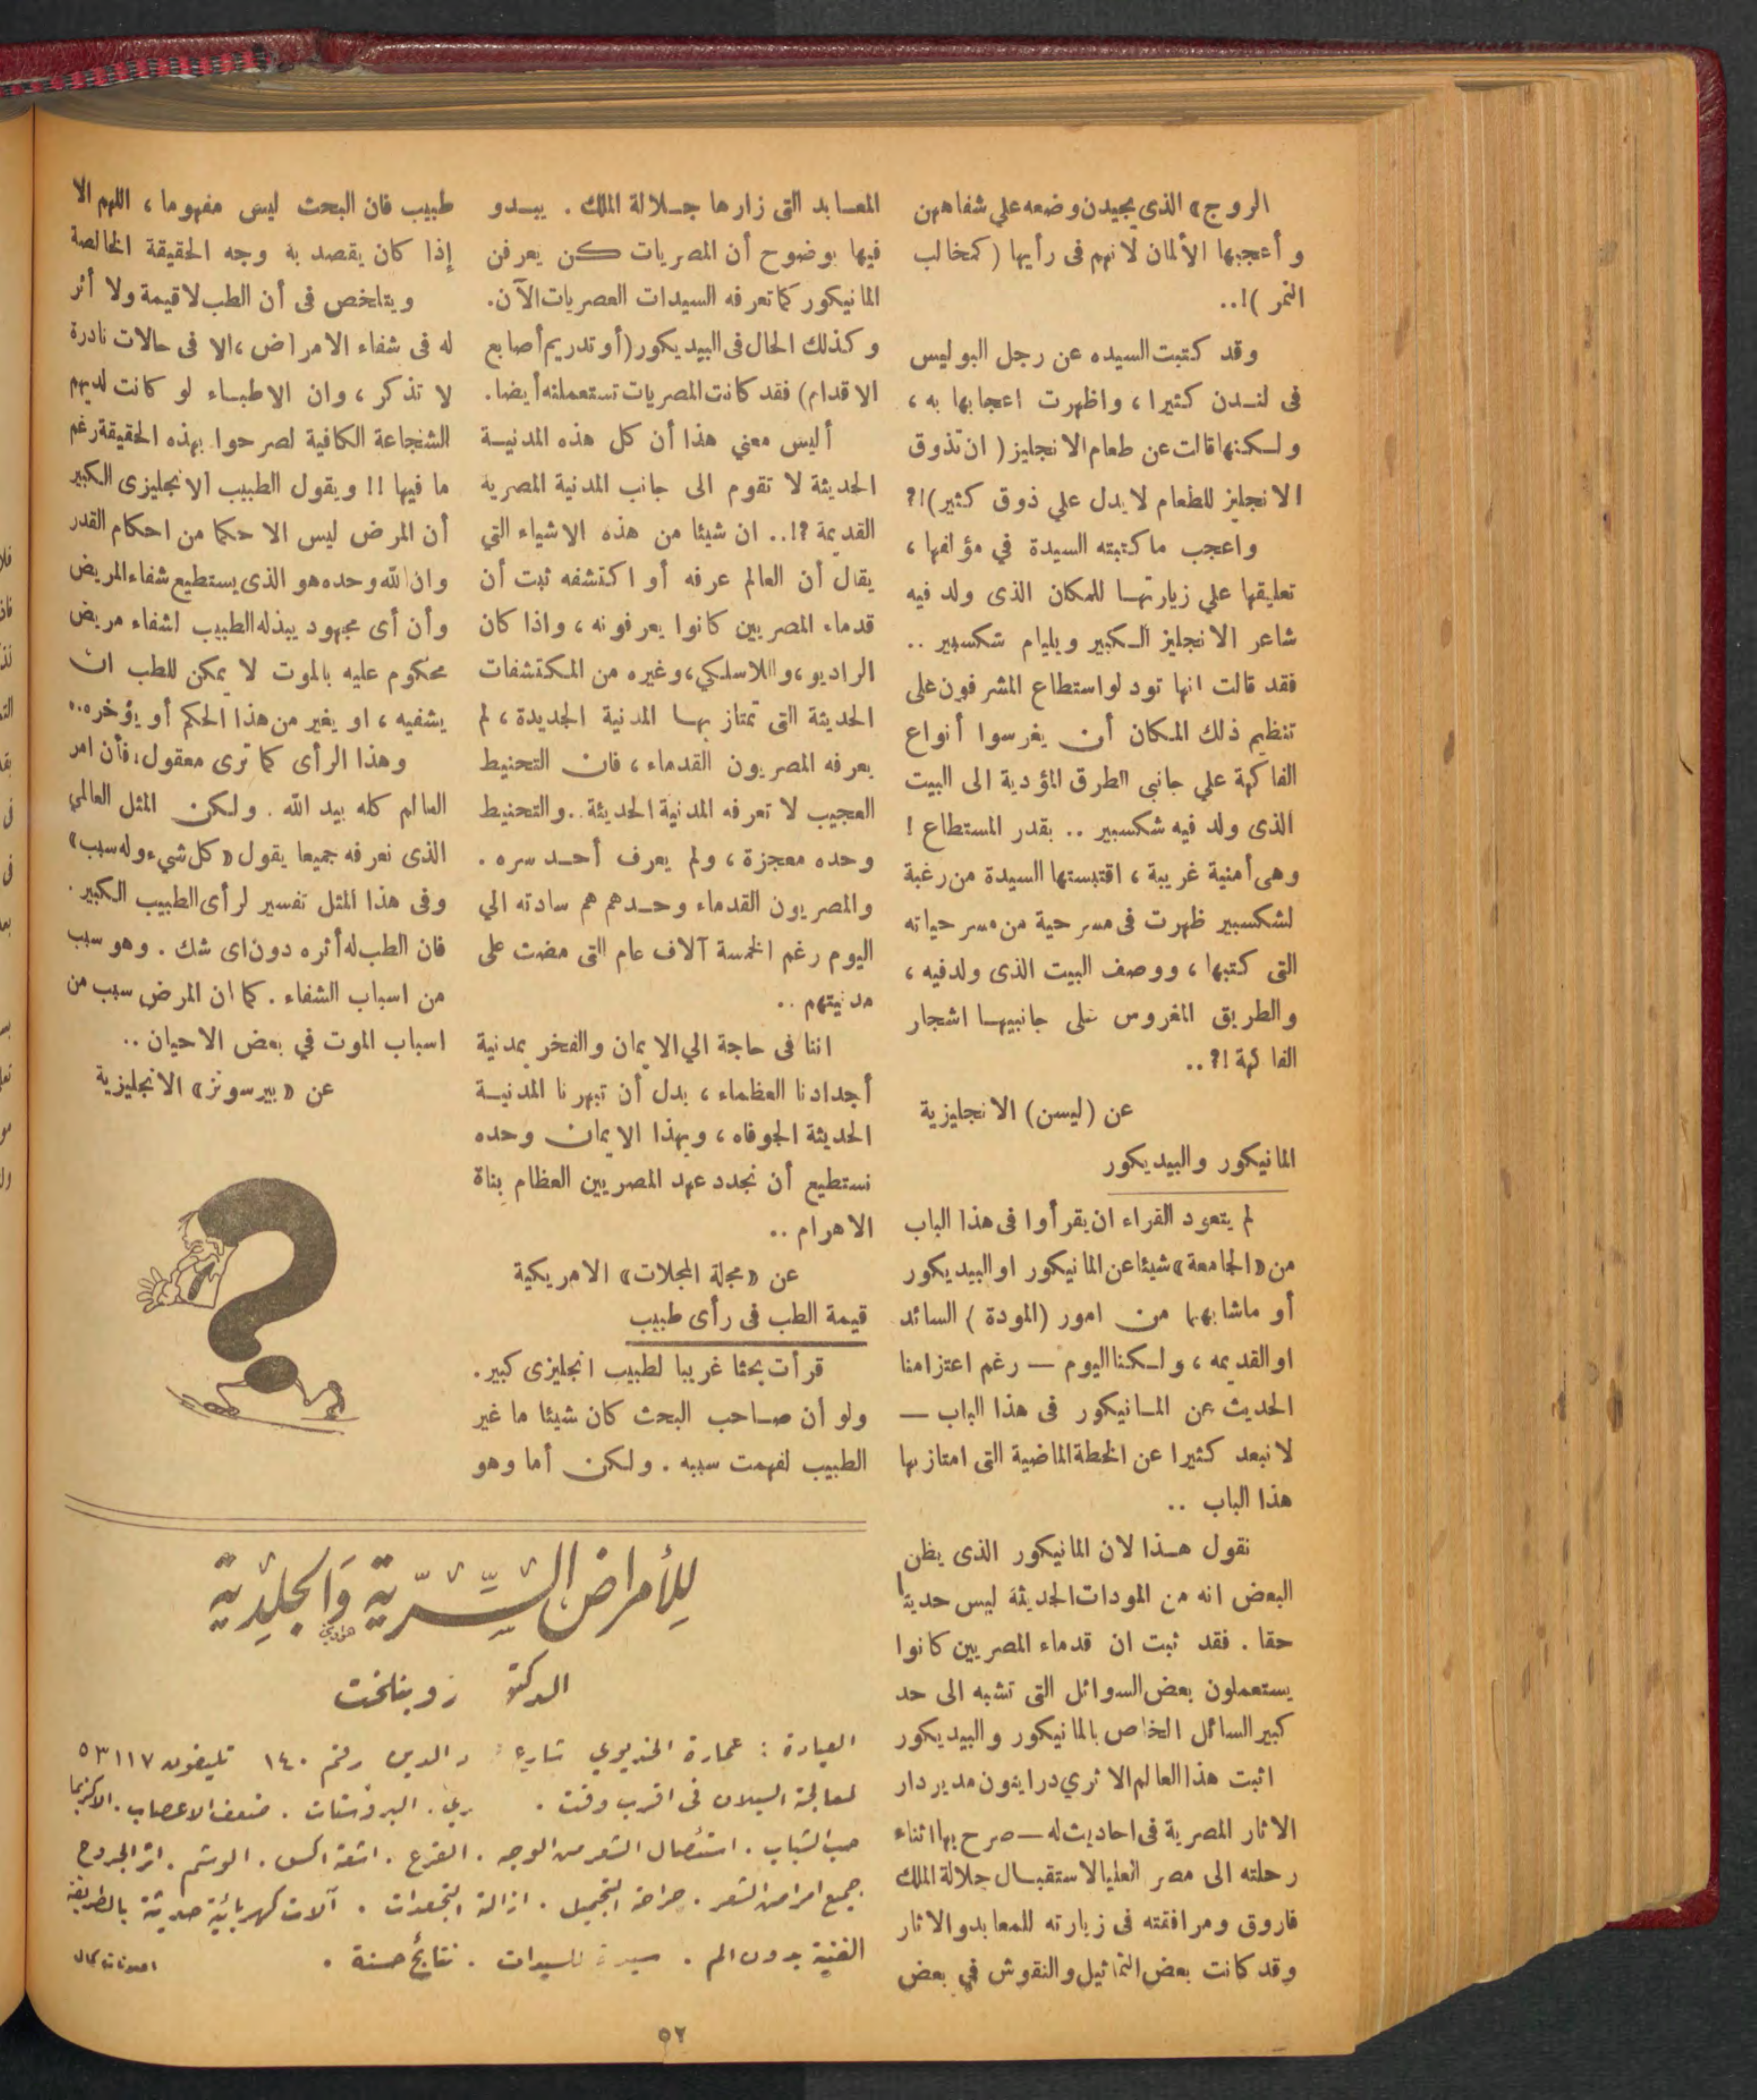 الروج» الذى يجيدن وضعه علي شفاههن
و أعجبها الألمان لانهم فى رأيها (كمخالب
النمر )!..
وقد كتبت السيده عن رجل البوليس
فى لنـدن كثيرا ، واظهرت اعجابها به ،
ولـكنها قالت عن طعام الانجليز ( ان تذوق
الانجليز للطعام لا يدل علي ذوق كثير)!?
واعجب ما كتبته السيدة في مؤلفها ،
تعليقها علي زيارتهـا للمكان الذى ولد فيه
شاعر الانجليز الـكبير ويليام شكسبير ..
فقد قالت انها تود لواستطاع المشرفون على
تنظيم ذلك المكان أن يغرسوا أنواع
الفاكهة علي جانبى الطرق المؤدية الى البيت
الذى ولد فيه شكسبير .. بقدر المستطاع !
وهى أمنية غريبة ، اقتبستها السيدة من رغبة
لشكسبير ظهرت فى مسرحية من مسرحياته
التى كتبها ، ووصف البيت الذى ولدفيه ،
والطريق المغروس على جانبيهـا اشجار
الفاكهة !? ..
عن (ليسن) الانجليزية
المانيكور والبيديكور
لم يتعود القراء ان يقرأوا فى هذا الباب
من «الجامعة» شيئا عن المانيكور او البيديكور
أو ماشابهها من امور (المودة ) السائد
او القديمه ، ولـكنا اليوم — رغم اعتزامنا
الحديث عن المـانيكور فى هذا الباب —
لا نبعد كثيرا عن الخطة الماضية التى امتاز بها
هذا الباب ..
نقول هـذا لان المانيكور الذى يظن
البعض انه من المودات الحديثة ليس حديثا
حقا . فقد ثبت ان قدماء المصريين كانوا
يستعملون بعض السوائل التى تشبه الى حد
كبير السائل الخاص بالمانيكور والبيديكور
اثبت هذا العالم الاثري دراينون مدير دار
الاثار المصرية فى احاديث له — صرح بها اثناء
رحلته الى مصر العليا لاستقبـال جلالة الملك
فاروق ومرافقته فى زيارته للمعابد والاثار
وقد كانت بعض التماثيل والنقوش في بعض
المعـابد التى زارها جـلالة الملك . يبـدو
فيها بوضوح أن المصريات كن يعرفن
المانيكور كما تعرفه السيدات العصريات الآن.
وكذلك الحال فى البيديكور (أو تدريم أصابع
الاقدام) فقد كانت المصريات تستعملنه أيضا.
أليس معني هذا أن كل هذه المدنيـة
الحديثة لا تقوم الى جانب المدنية المصرية
القديمة ?!.. ان شيئا من هذه الاشياء التي
يقال أن العالم عرفه أو اكتشفه ثبت أن
قدماء المصريين كانوا يعرفونه ، واذا كان
الراديو، واللاسلكي، وغيره من المكتشفات
الحديثة التى تمتاز بهـا المدنية الجديدة ، لم
يعرفه المصريون القدماء ، فان التحنيط
العجيب لا تعرفه المدنية الحديثة.. والتحنيط
وحده معجزة ، ولم يعرف أحـد سره .
والمصريون القدماء وحـدهم هم سادته الي
اليوم رغم الخمسة آلاف عام التى مضت على
مدنيتهم ..
اننا فى حاجة الي الايمان والفخر بمدنية
أجدادنا العظماء ، بدل أن تبهرنا المدنيـة
الحديثة الجوفاه ، وبهذا الايمان وحده
نستطيع أن نجدد عهد المصريين العظام بناة
الاهرام ..
عن «مجلة المجلات» الامريكية
قيمة الطب فى رأى طبيب
قرأت بحثا غريبا لطبيب انجليزى كبير.
ولو أن صـاحب البحث كان شيئا ما غير
الطبيب لفهمت سببه . ولكن أما وهو
طبيب فان البحث ليس مفهوما ، اللهم الا
إذا كان يقصد به وجه الحقيقة الخالصة
ويتلخص فى أن الطب لا قيمة ولا أثر
له فى شفاء الامراض ، الا فى حالات نادرة
لا تذكر ، وان الاطبـاء لو كانت لديهم
الشجاعة الكافية لصرحوا بهذه الحقيقة رغم
ما فيها !! ويقول الطبيب الانجليزى الكبير
أن المرض ليس الا حكما من احكام القدر
وان الله وحده هو الذى يستطيع شفاء المريض
وأن أى مجهود يبذله الطبيب اشفاء مريض
محكوم عليه بالموت لا يمكن للطب ان
يشفيه ، او يغير من هذا الحكم أو يؤخره..
وهذا الرأى كما ترى معقول، فأن امر
العالم كله بيد الله . ولكن المثل العالمي
الذى نعرفه جميعا يقول «كل شيء وله سبب»
وفى هذا المثل تفسير لرأى الطبيب الكبير .
فان الطب له أثره دون اى شك . وهو سبب
من اسباب الشفاء . كما ان المرض سبب من
اسباب الموت في بعض الاحيان ..
عن «بيرسونز» الانجليزية
للأمراض السرّية والجلدية
الدكتور زوبنلخت
العيادة : عمارة الخديوي شارع الدين رقم ١٤٠ تليفون ٥٣١١٧
لمعالجة السيلان فى اقرب وقت . البروستات . ضعف الاعصاب . الاكزيما
حب الشباب . استئصال الشعر من الوجه . القرع . اشعة اكس . الوشم . اثر الجروح
جميع امراض الشعر . جراحة التجميل . ازالة التجعدات . آلات كهربائية حديثة بالطريقة
الفنية بدون الم . للسيدات . نتائج حسنة .
٥٢